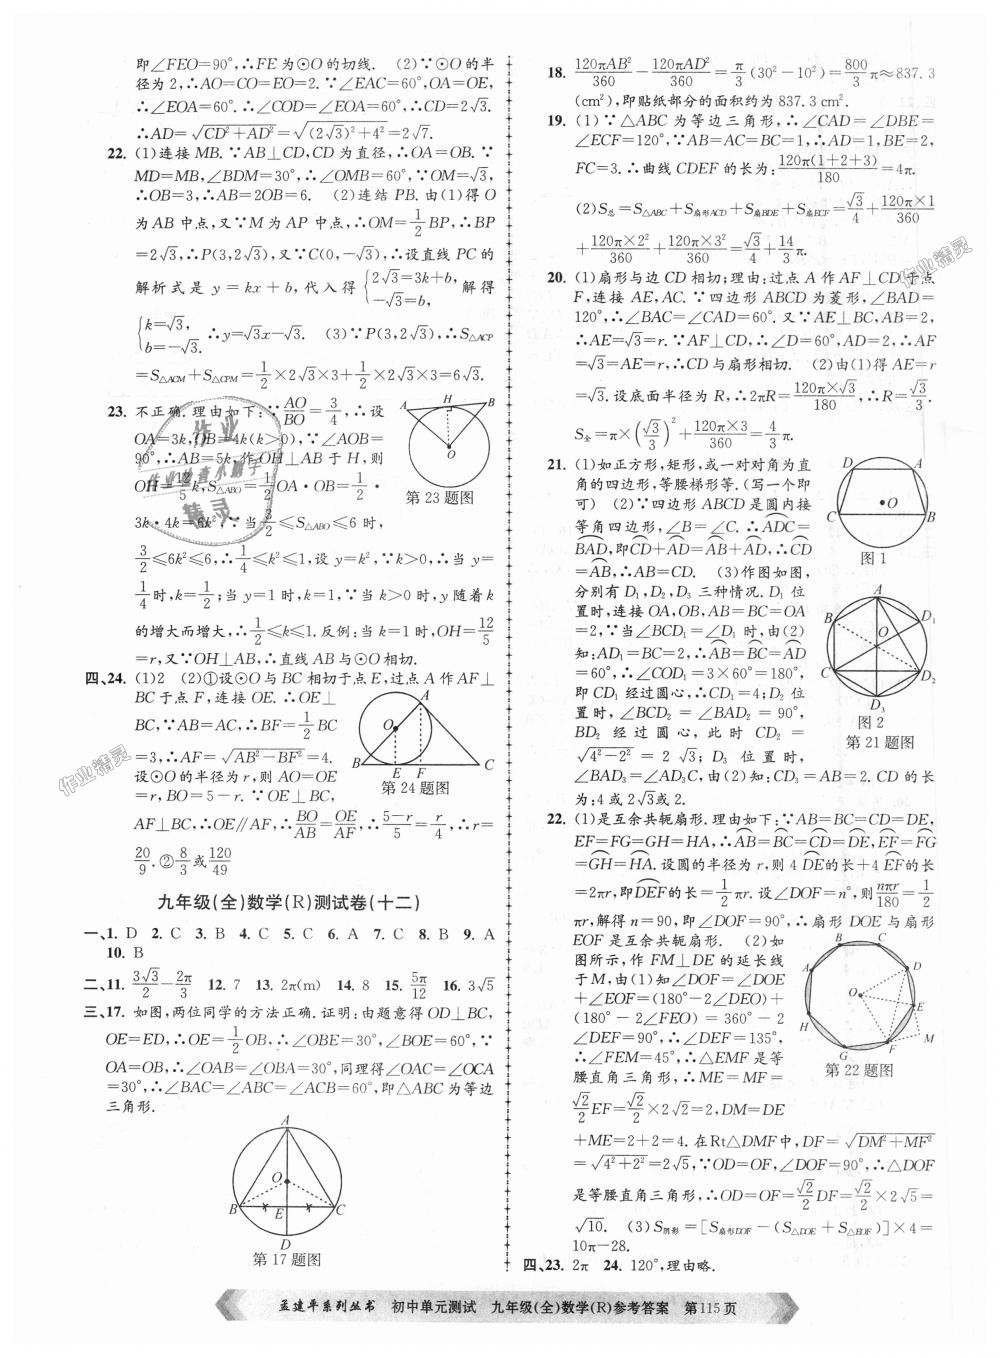 即∠FEO=90°,∴FE为⊙O的切线. (2)∵⊙O的半
径为2,∴AO=CO=EO=2.∵∠EAC=60°,OA=OE,
∴∠EOA=60°.∴∠COD=∠EOA=60°,∴CD=2√3.
∴AD=√(CD²+AD²)=√((2√3)²+4²)=2√7.
22. (1)连接MB.∵AB⊥CD,CD为直径,∴OA=OB.∵
MD=MB,∠BDM=30°,∴∠OMB=60°,∵OM=√3,
∴OB=3,∴AB=2OB=6. (2)连结PB.由(1)得O
为AB中点,又∵M为AP中点,∴OM=1/2BP,∴BP
=2√3,∴P(3,2√3),又∵C(0,-√3),∴设直线PC的
解析式是y=kx+b,代入得{2√3=3k+b, -√3=b, 解得
{k=√3, b=-√3. ∴y=√3x-√3. (3)∵P(3,2√3),∴S△ACP
=S△ACM+S△CPM=1/2×2√3×3+1/2×2√3×3=6√3.
23. 不正确.理由如下:∵AO/BO=3/4,∴设
OA=3k,OB=4k(k>0),∵∠AOB=
90°,∴AB=5k,作OH⊥AB于H,则
OH=12/5k,S△ABO=1/2OA·OB=1/2
·3k·4k=6k².∵当3/2≤S△ABO≤6时,
3/2≤6k²≤6,∴1/4≤k²≤1,设y=k²,∵k>0,∴当y=
1/4时,k=1/2;当y=1时,k=1,∵当k>0时,y随着k
的增大而增大,∴1/2≤k≤1.反例:当k=1时,OH=12/5
=r,又∵OH⊥AB,∴直线AB与⊙O相切.
A H B
O
第23题图
四、24. (1)2 (2)①设⊙O与BC相切于点E,过点A作AF⊥
BC于点F,连接OE.∴OE⊥
BC,∵AB=AC,∴BF=1/2BC
=3,∴AF=√(AB²-BF²)=4.
设⊙O的半径为r,则AO=OE
=r,BO=5-r.∵OE⊥BC,
AF⊥BC,∴OE∥AF,∴BO/AB=OE/AF,∴(5-r)/5=r/4,∴r=
20/9.②8/3或120/49
A
O
B E F C
第24题图
九年级(全)数学(R)测试卷(十二)
一、1. D 2. C 3. B 4. C 5. C 6. A 7. C 8. B 9. A
10. B
二、11. 3√3/2-2π/3 12. 7 13. 2π(m) 14. 8 15. 5π/12 16. 3√5
三、17. 如图,两位同学的方法正确.证明:由题意得OD⊥BC,
OE=ED,∴OE=1/2OB,∴∠OBE=30°,∠BOE=60°,∵
OA=OB,∴∠OAB=∠OBA=30°,同理得∠OAC=∠OCA
=30°,∴∠BAC=∠ABC=∠ACB=60°,即△ABC为等边
三角形.
A
O
B E C
D
第17题图
18. 120πAB²/360-120πAD²/360=π/3(30²-10²)=800/3π≈837.3
(cm²),即贴纸部分的面积约为837.3 cm².
19. (1)∵△ABC为等边三角形,∴∠CAD=∠DBE=
∠ECF=120°,∵AB=AC=BC=1,∴AD=1,BE=2,
FC=3.∴曲线CDEF的长为:120π(1+2+3)/180=4π.
(2)S总=S△ABC+S扇形ACD+S扇形BDE+S扇形ECF=√3/4+120π×1/360
+120π×2²/360+120π×3²/360=√3/4+14/3π.
20. (1)扇形与边CD相切;理由:过点A作AF⊥CD于点
F,连接AE,AC.∵四边形ABCD为菱形,∠BAD=
120°,∴∠BAC=∠CAD=60°.又∵AE⊥BC,AB=2,
∴AE=√3=r.∵AF⊥CD,∴∠D=60°,AD=2,∴AF
=√3=AE=r,∴CD与扇形相切. (2)由(1)得AE=r
=√3.设底面半径为R,∴2πR=120π×√3/180,∴R=√3/3.
S全=π×(√3/3)²+120π×3/360=4/3π.
21. (1)如正方形,矩形,或一对对角为直
角的四边形,等腰梯形等.(写一个即
可) (2)∵四边形ABCD是圆内接
等角四边形,∠B=∠C.∴ADC=
BAD,即CD+AD=AB+AD,∴CD
=AB,∴AB=CD. (3)作图如图,
分别有D₁,D₂,D₃三种情况.D₁位
置时,连接OA,OB,AB=BC=OA
=2,∵当∠BCD₁=∠D₁时,由(2)
知:AD₁=BC=2,∴AB=BC=AD
=60°,∴∠COD₁=3×60°=180°,
即CD₁经过圆心,∴CD₁=4;D₂位
置时,∠BCD₂=∠BAD₂=90°,
BD₂经过圆心,此时CD₂=
√(4²-2²)=2√3;D₃位置时,
∠BAD₃=∠AD₃C,由(2)知:CD₃=AB=2.CD的长
为:4或2√3或2.
D A
O
C B
图1
A
B D₁
O
C D₂
D₃
图2
第21题图
22. (1)是互余共轭扇形.理由如下:∵AB=BC=CD=DE,
EF=FG=GH=HA,∴AB=BC=CD=DE,EF=FG
=GH=HA.设圆的半径为r,则4DE的长+4EF的长
=2πr,即DEF的长=1/2πr.设∠DOF=n°,则nπr/180=1/2
πr,解得n=90,即∠DOF=90°,∴扇形DOE与扇形
EOF是互余共轭扇形. (2)如
图所示,作FM⊥DE的延长线
于M,由(1)知∠DOF=∠DOE
+∠EOF=(180°-2∠DEO)+
(180°-2∠FEO)=360°-2
∠DEF=90°,∴∠DEF=135°,
∴∠FEM=45°,∴△EMF是等
腰直角三角形,∴ME=MF=
√2/2EF=√2/2×2√2=2,DM=DE
+ME=2+2=4.在Rt△DMF中,DF=√(DM²+MF²)
=√(4²+2²)=2√5,∵OD=OF,∠DOF=90°,∴△DOF
是等腰直角三角形,∴OD=OF=√2/2DF=√2/2×2√5=
√10. (3)S阴影=[S扇形DOF-(S△DOE+S△EOF)]×4=
10π-28.
B C
A D
O
E
H M
G F
第22题图
四、23. 2π 24. 120°,理由略.
孟建平系列丛书 初中单元测试 九年级(全)数学(R)参考答案 第115页
作业精灵
作业精灵
作业
作业检查小助手
精灵